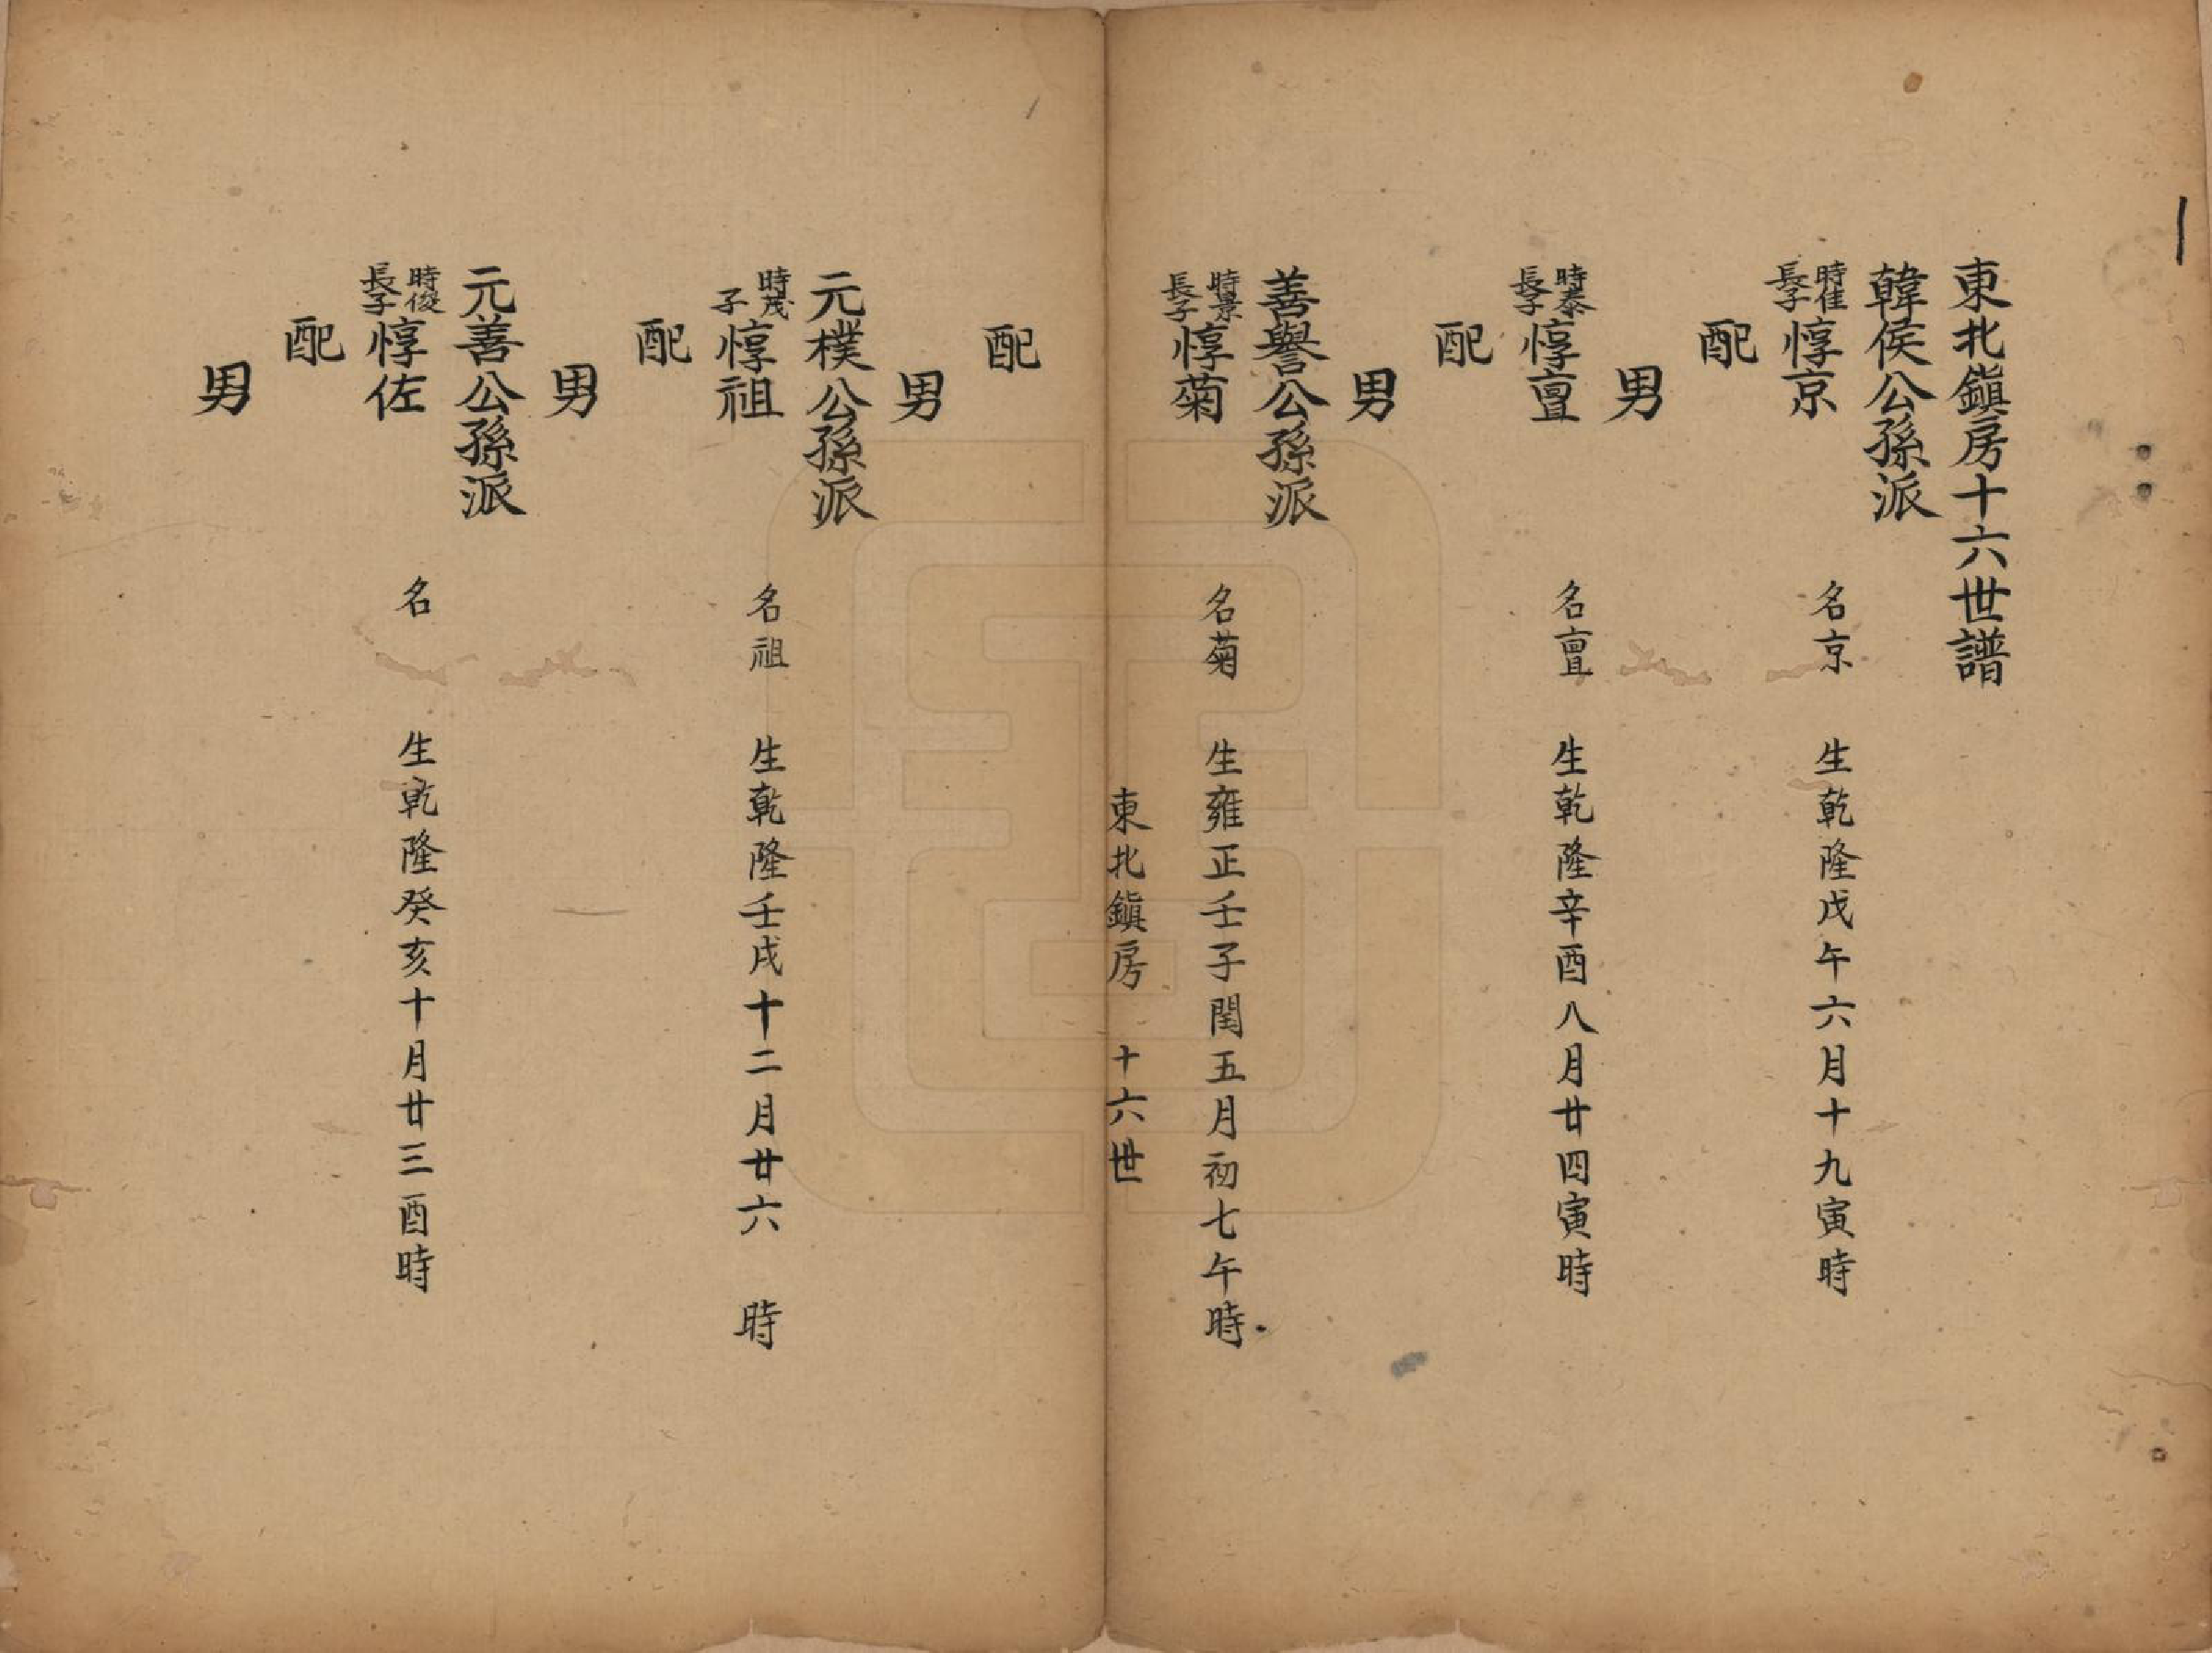 東北鎭房十六世譜
韓侯公孫派
時佳長子惇京 名京 生乾隆戊午六月十九寅時
配
男
時泰長子惇亶 名亶 生乾隆辛酉八月廿四寅時
配
男
善譽公孫派
時景長子惇菊 名菊 生雍正壬子閏五月初七午時
東北鎭房 十六世
配
男
元樸公孫派
時茂子惇祖 名祖 生乾隆壬戌十二月廿六 時
配
男
元善公孫派
時俊長子惇佐 名 生乾隆癸亥十月廿三酉時
配
男